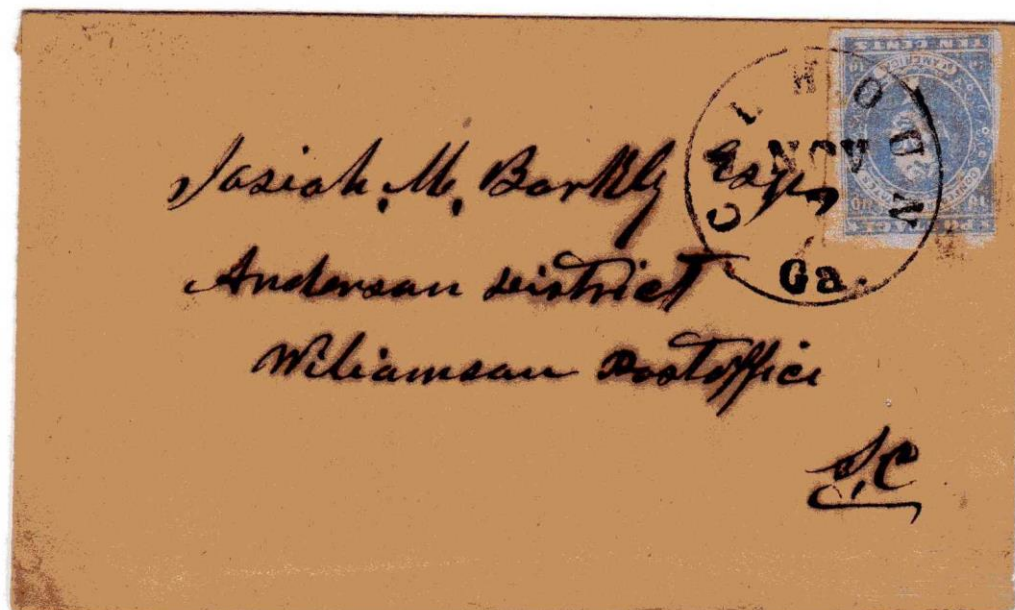 TEN CENTS
CALHOUN
NOV
Ga.
Josiah. M. Barkly Esqr,
Anderson District
Wiliamson Postoffice
S,C